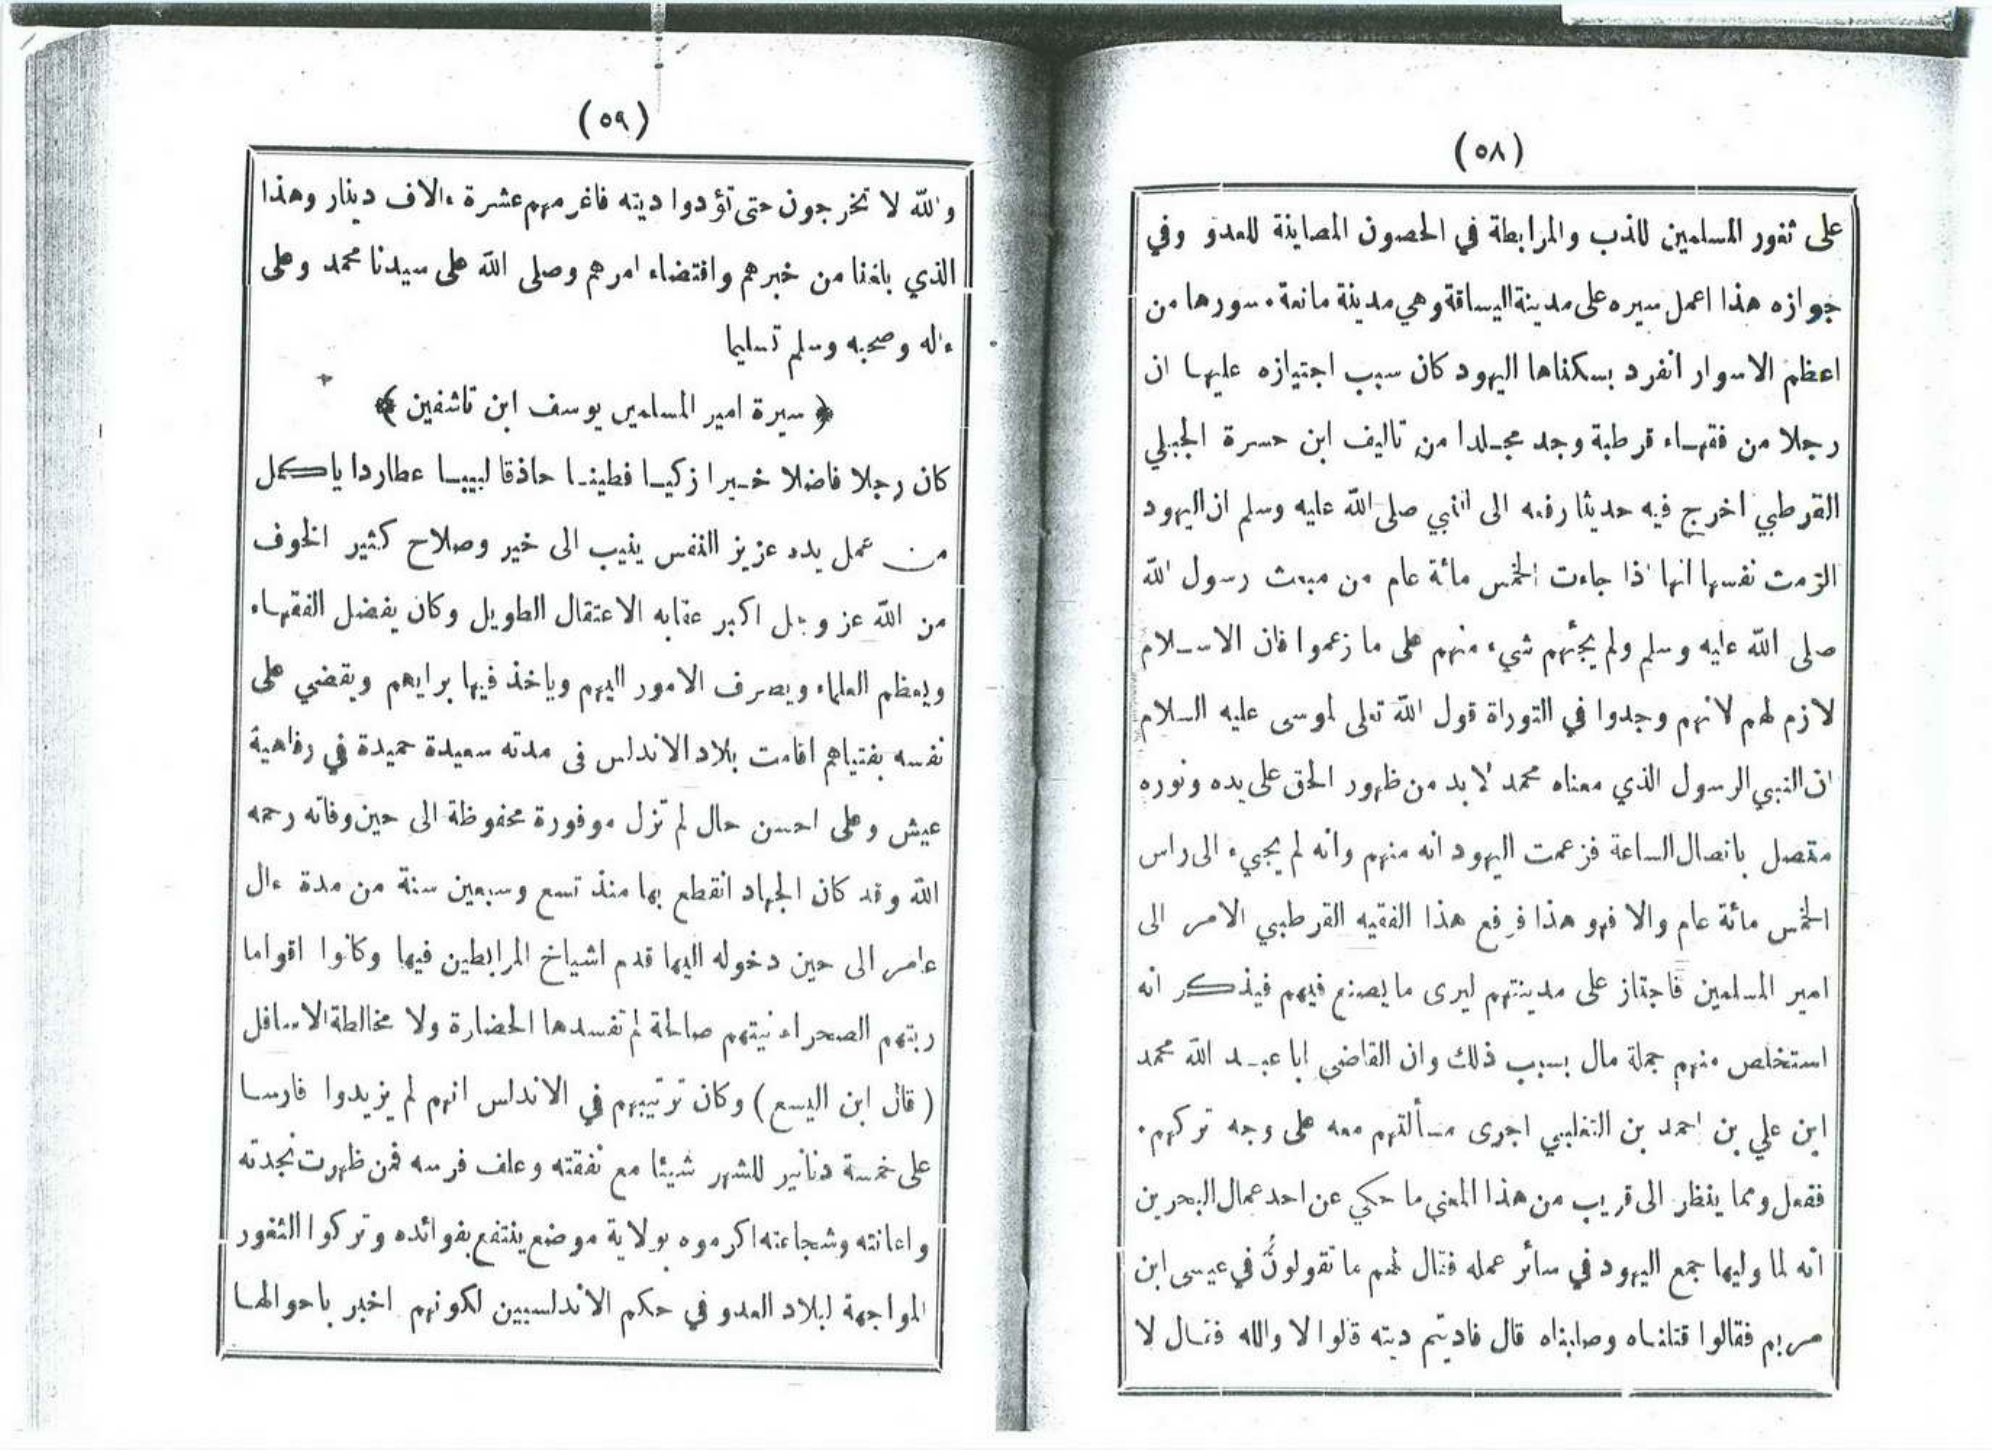 (٥٨)
على ثغور المسلمين للذب والمرابطة في الحصون المصاينة للعدو وفي
جوازه هذا اعمل سيره على مدينة اليسانة وهي مدينة مانعة سورها من
اعظم الاسوار انفرد بسكناها اليهود كان سبب اجتيازه عليها ان
رجلا من فقهاء قرطبة وجد مجلدا من تاليف ابن حسرة الجبلي
القرطبي اخرج فيه حديثا رفعه الى النبي صلى الله عليه وسلم ان اليهود
الزمت نفسها انها اذا جاءت الخمس مائة عام من مبعث رسول الله
صلى الله عليه وسلم ولم يجئهم شيء منهم على ما زعموا فان الاسلام
لازم لهم لانهم وجدوا في التوراة قول الله تعلى لموسى عليه السلام
ان النبي الرسول الذي معناه محمد لا بد من ظهور الحق على يده ونوره
متصل باتصال الساعة فزعمت اليهود انه منهم وانه لم يجيء الى راس
الخمس مائة عام والا فهو هذا فرفع هذا الفقيه القرطبي الامر الى
امير المسلمين فاجتاز على مدينتهم ليرى ما يصنع فيهم فيذكر انه
استخلص منهم جملة مال بسبب ذلك وان القاضي ابا عبد الله محمد
ابن علي بن احمد بن التغلبي اجرى مسألتهم معه على وجه تركهم.
ففعل ومما ينظر الى قريب من هذا المعنى ما حكي عن احد عمال البحرين
انه لما وليها جمع اليهود في سائر عمله فقال لهم ما تقولون في عيسى ابن
مريم فقالوا قتلناه وصلبناه قال فاديتم ديته قالوا لا والله فقال لا
(٥٩)
والله لا تخرجون حتى تؤدوا ديته فاغرمهم عشرة ءالاف دينار وهذا
الذي بلغنا من خبرهم واقتضاء امرهم وصلى الله على سيدنا محمد وعلى
ءاله وصحبه وسلم تسليما
﴿ سيرة امير المسلمين يوسف ابن تاشفين ﴾
كان رجلا فاضلا خيرا زكيا فطينا حاذقا لبيبا عطاردا ياكل
من عمل يده عزيز النفس ينيب الى خير وصلاح كثير الخوف
من الله عز وجل اكبر عقابه الاعتقال الطويل وكان يفضل الفقهاء
ويعظم العلماء ويصرف الامور اليهم وياخذ فيها برايهم ويقضي على
نفسه بفتياهم اقامت بلاد الاندلس فى مدته سعيدة حميدة في رفاهية
عيش وعلى احسن حال لم تزل موفورة محفوظة الى حين وفاته رحمه
الله وقد كان الجهاد انقطع بها منذ تسع وسبعين سنة من مدة ءال
عامر الى حين دخوله اليها قدم اشياخ المرابطين فيها وكانوا اقواما
ربتهم الصحراء نيتهم صالحة لم تفسدها الحضارة ولا مخالطة الاسافل
(قال ابن اليسع) وكان ترتيبهم في الاندلس انهم لم يزيدوا فارسا
على خمسة دنانير للشهر شيئا مع نفقته وعلف فرسه فمن ظهرت نجدته
واعانته وشجاعته اكرموه بولاية موضع ينتفع بفوائده وتركوا الثغور
المواجهة لبلاد العدو في حكم الاندلسيين لكونهم اخبر باحوالها